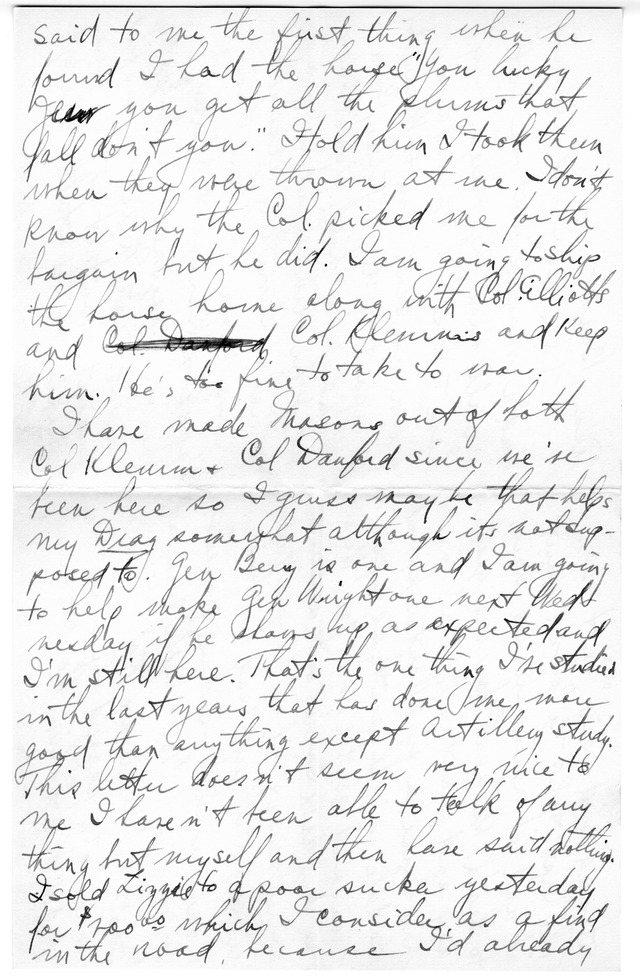 said to me the first thing when he
found I had the horse "You lucky
Jew you get all the plums that
fall don't you." I told him I took them
when they were thrown at me. I don't
know why the Col. picked me for the
bargain but he did. I am going to ship
the horse home along with Col. Elliotts
and Col. Danford Col. Klemms and keep
him. He's too fine to take to war.
I have made Masons out of both
Col Klemm & Col Danford since we've
been here so I guess maybe that helps
my Drag somewhat although it's not sup-
posed to. Gen Berry is one and I am going
to help make Gen Wright one next Wed-
nesday if he shows up as expected and
I'm still here. That's the one thing I've studied
in the last years that has done me more
good than anything except Artillery study.
This letter doesn't seem very nice to
me I haven't been able to talk of any
thing but myself and then have said nothing.
I sold Lizzie to a poor sucker yesterday
for $200 00 which I consider as a find
in the road, because I'd already